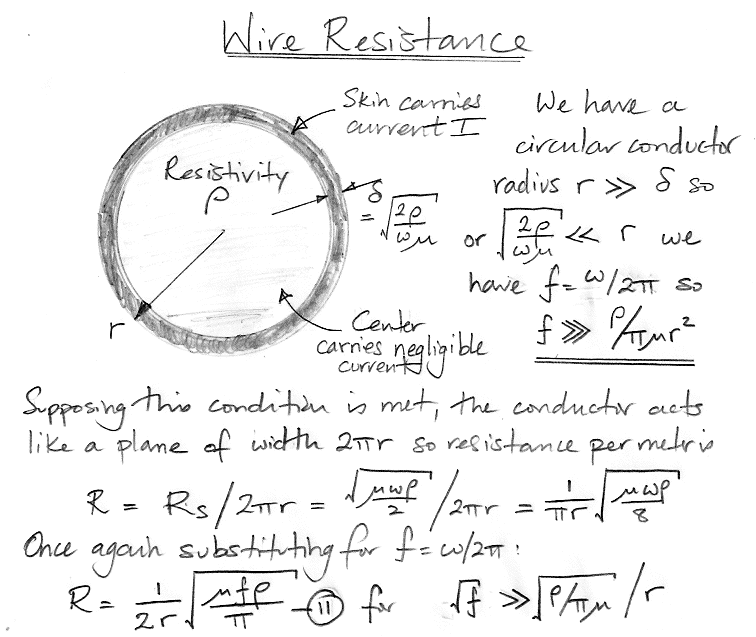 Wire Resistance
Skin carries
current I
Resistivity
ρ
δ
= √(2ρ/ωμ)
r
Center
carries negligible
current
We have a
circular conductor
radius r >> δ so
or √(2ρ/ωμ) << r we
have f = ω/2π so
f >>> ρ/πμr²
Supposing this condition is met, the conductor acts
like a plane of width 2πr so resistance per metre is
R = Rs/2πr = √(μωρ/2) / 2πr = 1/πr √(μωρ/8)
Once again substituting for f = ω/2π :
R = 1/2r √(μfρ/π) – (11) for √f >> √(ρ/πμ) / r